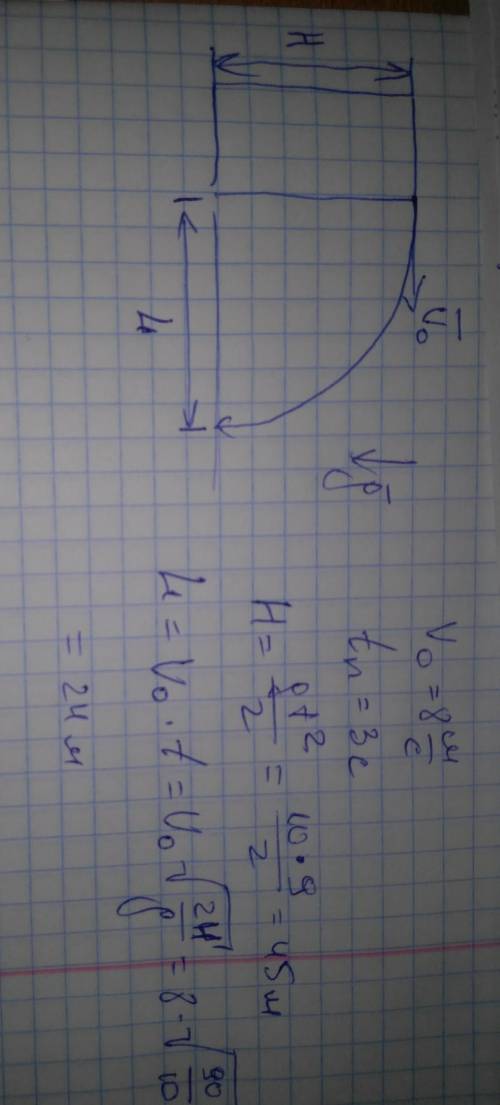 H
V̄₀
ḡ
L
V₀ = 8 м/с
tₙ = 3с
H = gt²/2 = 10·9/2 = 45м
L = V₀ · t = V₀√(2H/g) = 8·√(90/10)
= 24м